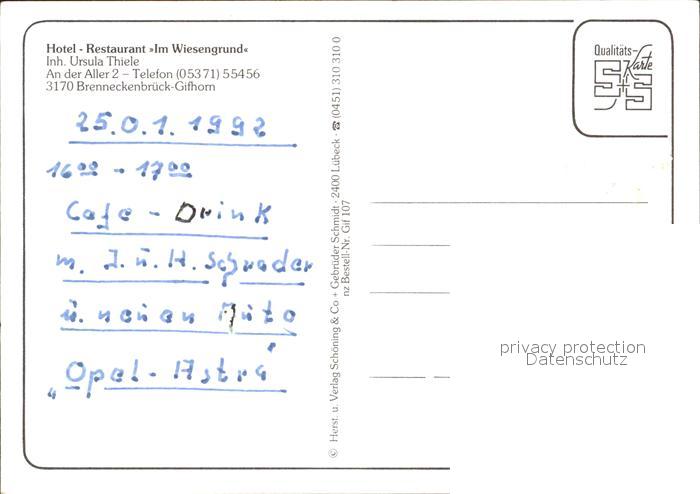 Hotel - Restaurant »Im Wiesengrund«
Inh. Ursula Thiele
An der Aller 2 – Telefon (05371) 55456
3170 Brenneckenbrück-Gifhorn
25.0.1.1992
16⁰⁰ - 17⁰⁰
Cafe - Drink
m. J. u. H. Schrader
u. neuen Auto
„Opel-Astra“
© Herst. u. Verlag Schöning & Co + Gebrüder Schmidt · 2400 Lübeck · ☎ (0451) 310 310 0
nz Bestell-Nr. Gif 107
Qualitäts-
Karte
S+S
privacy protection
Datenschutz